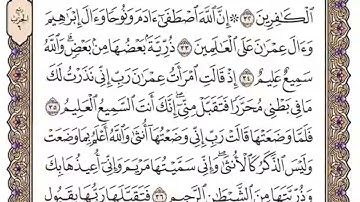 ٱلْكَـٰفِرِينَ ٣٢ ۞ إِنَّ ٱللَّهَ ٱصْطَفَىٰٓ ءَادَمَ وَنُوحًا وَءَالَ إِبْرَٰهِيمَ
وَءَالَ عِمْرَٰنَ عَلَى ٱلْعَـٰلَمِينَ ٣٣ ذُرِّيَّةًۢ بَعْضُهَا مِنۢ بَعْضٍ ۗ وَٱللَّهُ
سَمِيعٌ عَلِيمٌ ٣٤ إِذْ قَالَتِ ٱمْرَأَتُ عِمْرَٰنَ رَبِّ إِنِّى نَذَرْتُ لَكَ
مَا فِى بَطْنِى مُحَرَّرًا فَتَقَبَّلْ مِنِّىٓ ۖ إِنَّكَ أَنتَ ٱلسَّمِيعُ ٱلْعَلِيمُ ٣٥
فَلَمَّا وَضَعَتْهَا قَالَتْ رَبِّ إِنِّى وَضَعْتُهَآ أُنثَىٰ وَٱللَّهُ أَعْلَمُ بِمَا وَضَعَتْ
وَلَيْسَ ٱلذَّكَرُ كَٱلْأُنثَىٰ ۖ وَإِنِّى سَمَّيْتُهَا مَرْيَمَ وَإِنِّىٓ أُعِيذُهَا بِكَ
وَذُرِّيَّتَهَا مِنَ ٱلشَّيْطَـٰنِ ٱلرَّجِيمِ ٣٦ فَتَقَبَّلَهَا رَبُّهَا بِقَبُولٍ